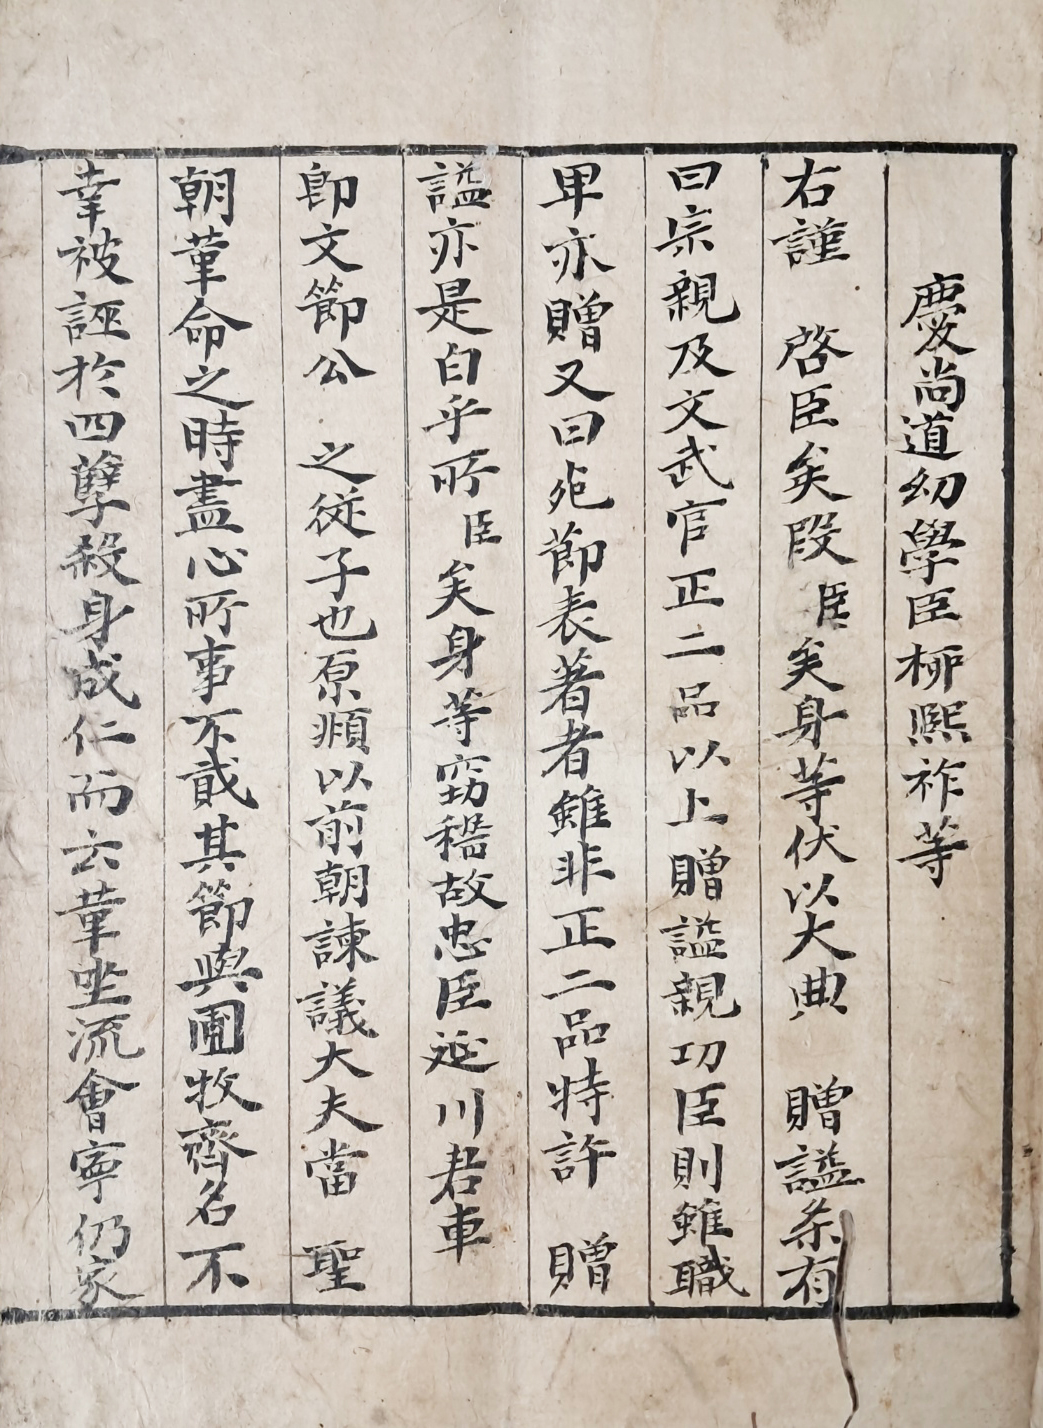 慶尙道幼學臣柳熙祚等
右謹 啓臣矣段臣矣身等伏以大典 贈謚条有
曰宗親及文武官正二品以上贈謚親功臣則雖職
卑亦贈又曰死節表著者雖非正二品特許 贈
謚亦是白乎所臣矣身等窃稽故忠臣延川君車
卽文節公 之從子也原頫以前朝諫議大夫當 聖
朝革命之時盡心所事不貳其節與圃牧齊名不
幸被誣於四孽殺身成仁而云革坐流會寧仍家